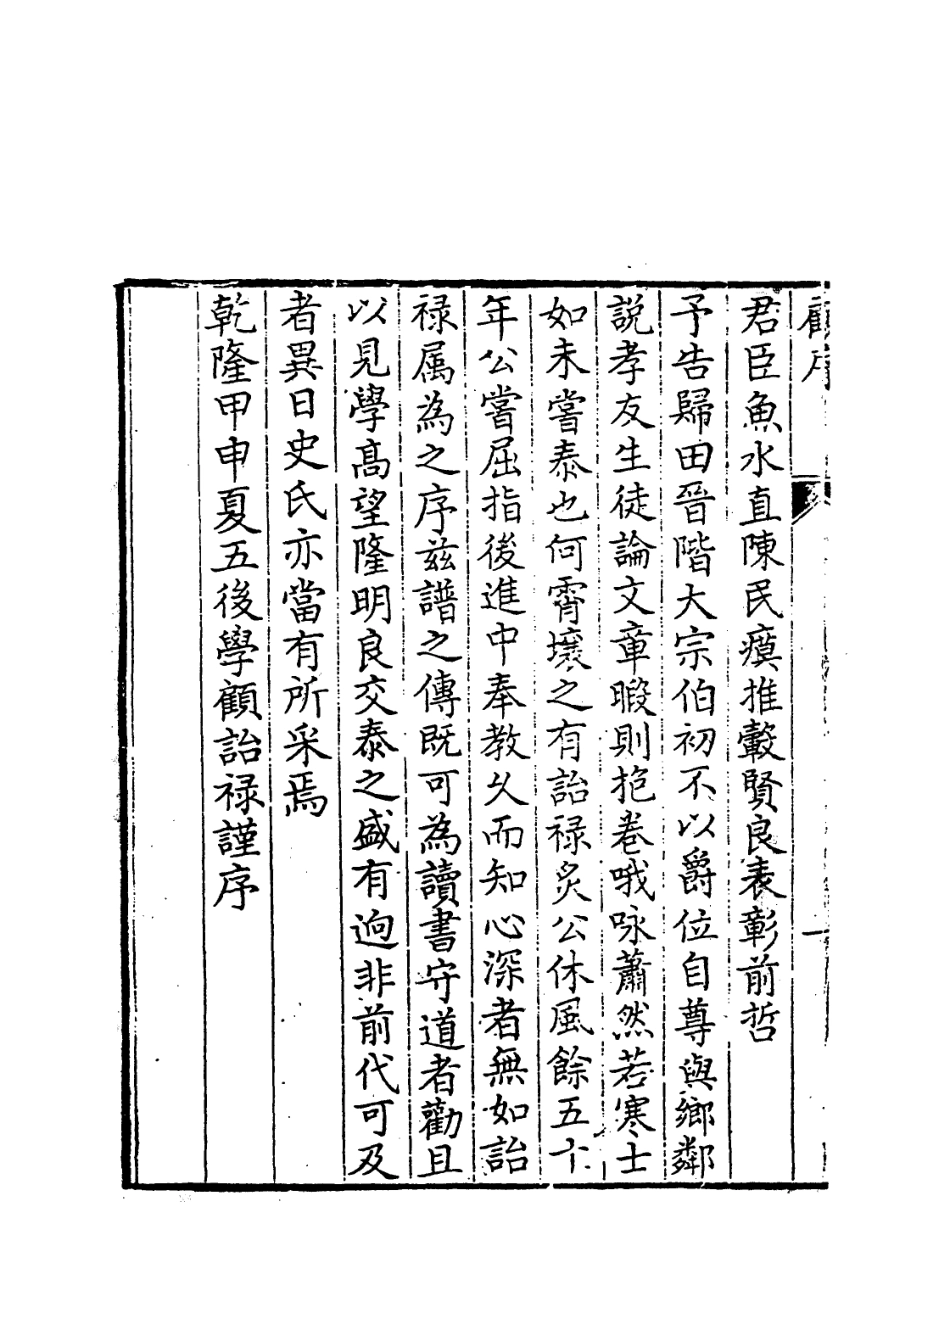 顧序
君臣魚水直陳民瘼推轂賢良表彰前哲
予告歸田晉階大宗伯初不以爵位自尊與鄉鄰
說孝友生徒論文章暇則抱卷哦咏蕭然若寒士
如未嘗泰也何霄壤之有詒禄炙公休風餘五十
年公嘗屈指後進中奉教久而知心深者無如詒
禄属為之序兹譜之傳既可為讀書守道者勸且
以見學高望隆明良交泰之盛有逈非前代可及
者異日史氏亦當有所采焉
乾隆甲申夏五後學顧詒禄謹序